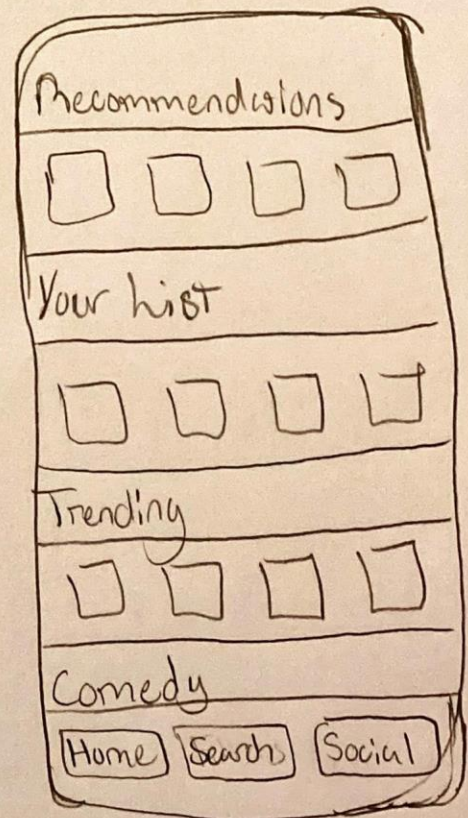 Recommendations
Your List
Trending
Comedy
Home Search Social